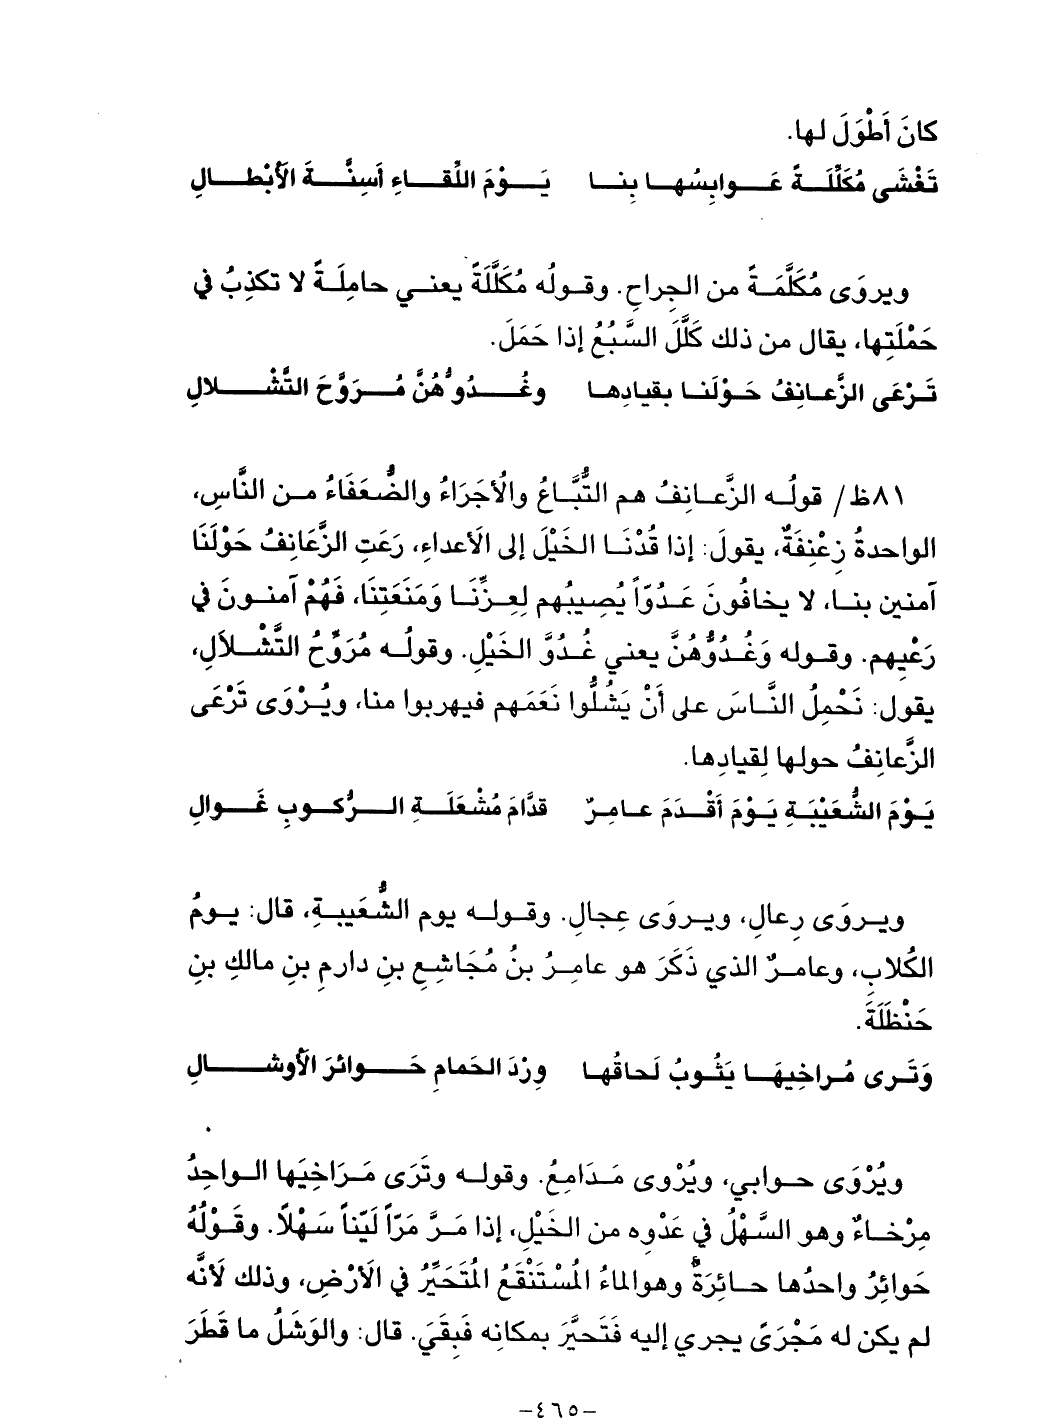 كانَ أَطْوَلَ لها.
تَغْشَى مُكَلِّلَةً عَوابِسُها بِنا يَوْمَ اللِّقاءِ أَسِنَّةَ الأَبْطالِ
ويروَى مُكَلَّمَةً من الجراحِ. وقولُه مُكَلَّلَةً يعني حامِلَةً لا تكذِبُ في
حَمْلَتِها، يقال من ذلك كَلَّلَ السَّبُعُ إذا حَمَلَ.
تَرْعَى الزَّعانِفُ حَوْلَنا بقيادِها وغُدُوُّهُنَّ مُرَوَّحَ التَّشْلالِ
٨١ظ/ قولُه الزَّعانِفُ هم التُّبَّاعُ والأجَرَاءُ والضُّعَفَاءُ من النَّاسِ،
الواحدةُ زِعْنِفَةٌ، يقولَ: إذا قُدْنَا الخَيْلَ إلى الأعداءِ، رَعَتِ الزَّعَانِفُ حَوْلَنَا
آمنين بنا، لا يخافُونَ عَدُوّاً يُصِيبُهم لِعِزِّنَا وَمَنَعَتِنَا، فَهُمْ آمنونَ في
رَعْيِهم. وقوله وَغُدُوُّهُنَّ يعني غُدُوَّ الخَيْلِ. وقولُه مُرَوَّحُ التَّشْلاَلِ،
يقول: نَحْمِلُ النَّاسَ على أَنْ يَشُلُّوا نَعَمَهم فيهربوا منا، ويُرْوَى تَرْعَى
الزَّعانِفُ حولها لِقيادِها.
يَوْمَ الشُّعَيْبَةِ يَوْمَ أَقْدَمَ عامِرٌ قدَّامَ مُشْعَلَةِ الرُّكوبِ غَوالِ
ويروَى رِعالِ، ويروَى عِجالِ. وقوله يوم الشُّعَيبةِ، قال: يومُ
الكُلابِ، وعامرٌ الذي ذَكَرَ هو عامِرُ بنُ مُجَاشِعِ بنِ دارمِ بنِ مالكِ بنِ
حَنْظَلَةَ.
وَتَرى مُراخِيهَا يَثُوبُ لَحاقُها وِرْدَ الحَمامِ حَوائرَ الأَوشالِ
ويُرْوَى حوابي، ويُرْوى مَدَامِعُ. وقوله وتَرَى مَرَاخِيَها الواحِدُ
مِرْخاءٌ وهو السَّهْلُ في عَدْوِه من الخَيْلِ، إذا مَرَّ مَرّاً لَيّناً سَهْلاً. وقَوْلُهُ
حَوائِرُ واحدُها حائِرَةٌ وهوالماءُ المُسْتَنْقَعُ المُتَحَيِّرُ في الأرْضِ، وذلك لأنَّه
لم يكن له مَجْرَىً يجري إليه فَتَحيَّرَ بمكانِه فَبِقَيَ. قال: والوَشَلُ ما قَطَرَ
-٤٦٥-